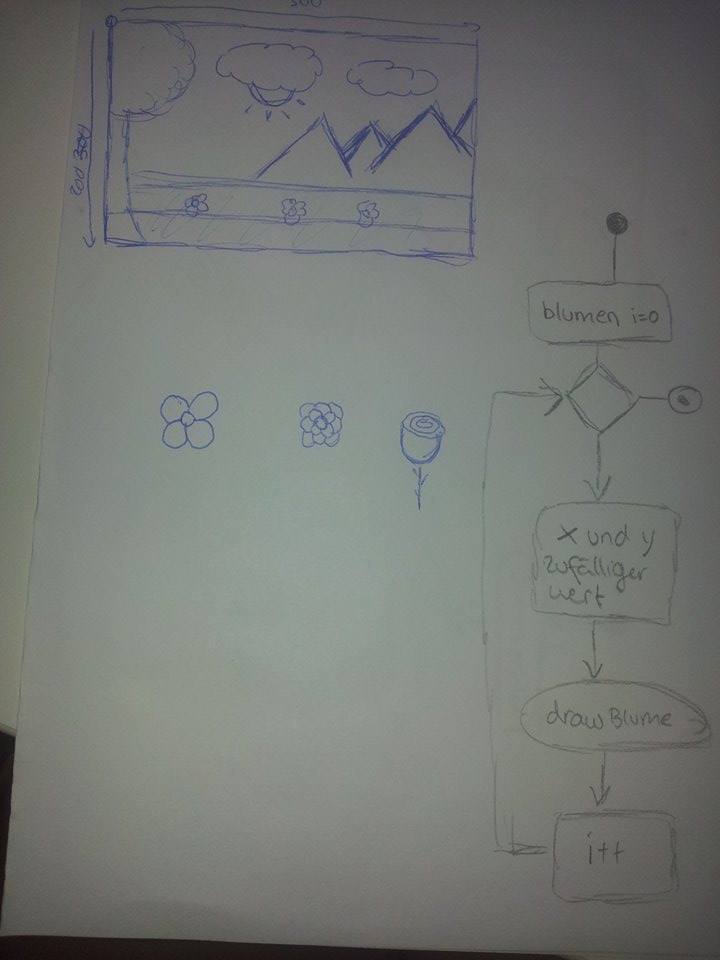 500
200 300
blumen i=0
x und y
zufälliger
wert
draw Blume
i++